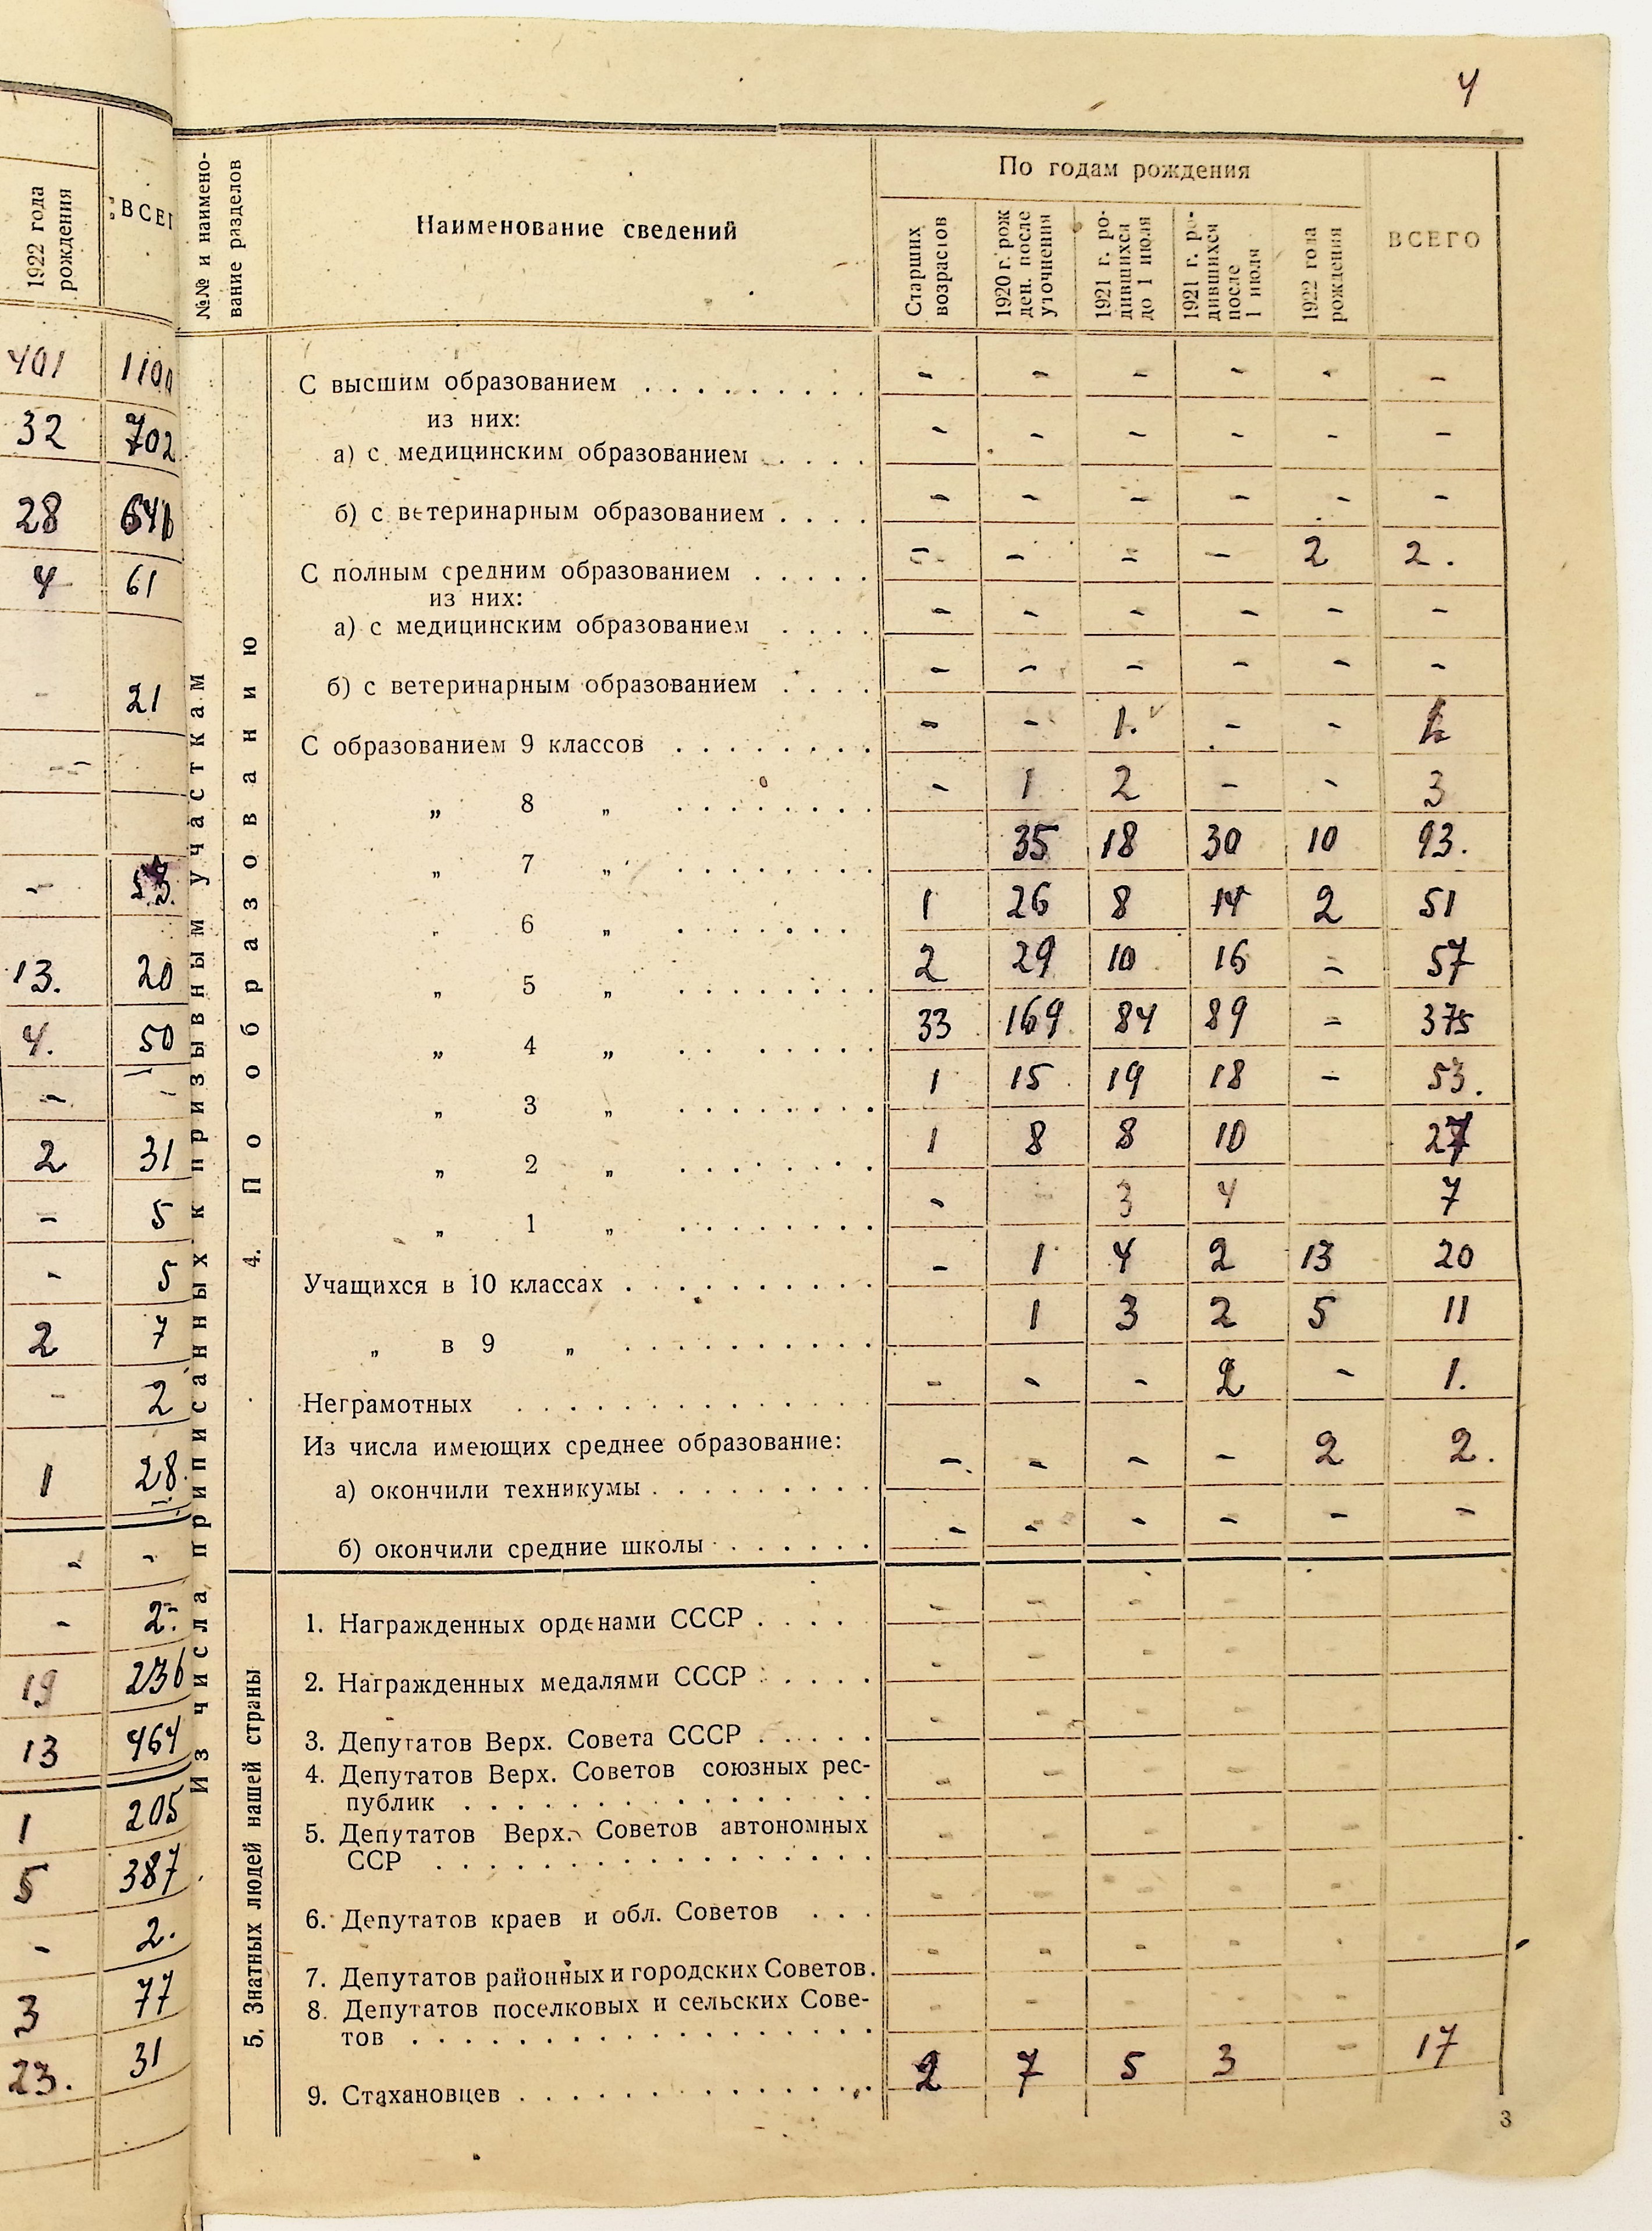 4
1922 года рождения
ВСЕГ
401 1100
32 702
28
4 61
- 21
-
13. 20
4. 50
- -
2 31
- 5
- 5
2 7
- 2
1 28.
- -
- 2.
19 236
13 464
1 205
5 387
- 2.
3 77
23. 31
№№ и наимено-
вание разделов
Наименование сведений
По годам рождения
Старших
возрастов
1920 г. рож
ден. после
уточнения
1921 г. ро-
дившихся
до 1 июля
1921 г. ро-
дившихся
после
1 июля
1922 года
рождения
ВСЕГО
Из числа приписанных к призывным участкам
4. По образованию
С высшим образованием . . . . . . . . - - - - - -
из них:
а) с медицинским образованием . . . . - - - - - -
б) с ветеринарным образованием . . . . - - - - - -
С полным средним образованием . . . . . - - - - 2 2.
из них:
а) с медицинским образованием . . . . - - - - - -
б) с ветеринарным образованием . . . . - - - - - -
С образованием 9 классов . . . . . . . . - - 1. - -
„ 8 „ . . . . . . . . - 1 2 - - 3
„ 7 „ . . . . . . . . 35 18 30 10 93.
„ 6 „ . . . . . . . 1 26 8 14 2 51
„ 5 „ . . . . . . . . 2 29 10 16 - 57
„ 4 „ . . . . . . . 33 169 84 89 - 375
„ 3 „ . . . . . . . . 1 15 19 18 - 53.
„ 2 „ . . . . . . . . 1 8 8 10 27
„ 1 „ . . . . . . . . - 3 4 7
Учащихся в 10 классах . . . . . . . . . . - 1 4 2 13 20
„ в 9 „ . . . . . . . . . . 1 3 2 5 11
Неграмотных . . . . . . . . . . . . . . - - - 2 - 1.
Из числа имеющих среднее образование:
а) окончили техникумы . . . . . . . . . - - - - 2 2.
б) окончили средние школы . . . . . . . - - - - - -
5. Знатных людей нашей страны
1. Награжденных орденами СССР . . . . - - - -
2. Награжденных медалями СССР . . . . . - - -
3. Депутатов Верх. Совета СССР . . . . . - - - -
4. Депутатов Верх. Советов союзных рес-
публик . . . . . . . . . . . . . . . . - - - - -
5. Депутатов Верх. Советов автономных
ССР . . . . . . . . . . . . . . . . . - - - - -
6. Депутатов краев и обл. Советов . . . - - - - -
7. Депутатов районных и городских Советов. - - - - -
8. Депутатов поселковых и сельских Сове-
тов . . . . . . . . . . . . . . . . . . - - - - -
9. Стахановцев . . . . . . . . . . . . . . 2 7 5 3 - 17
3